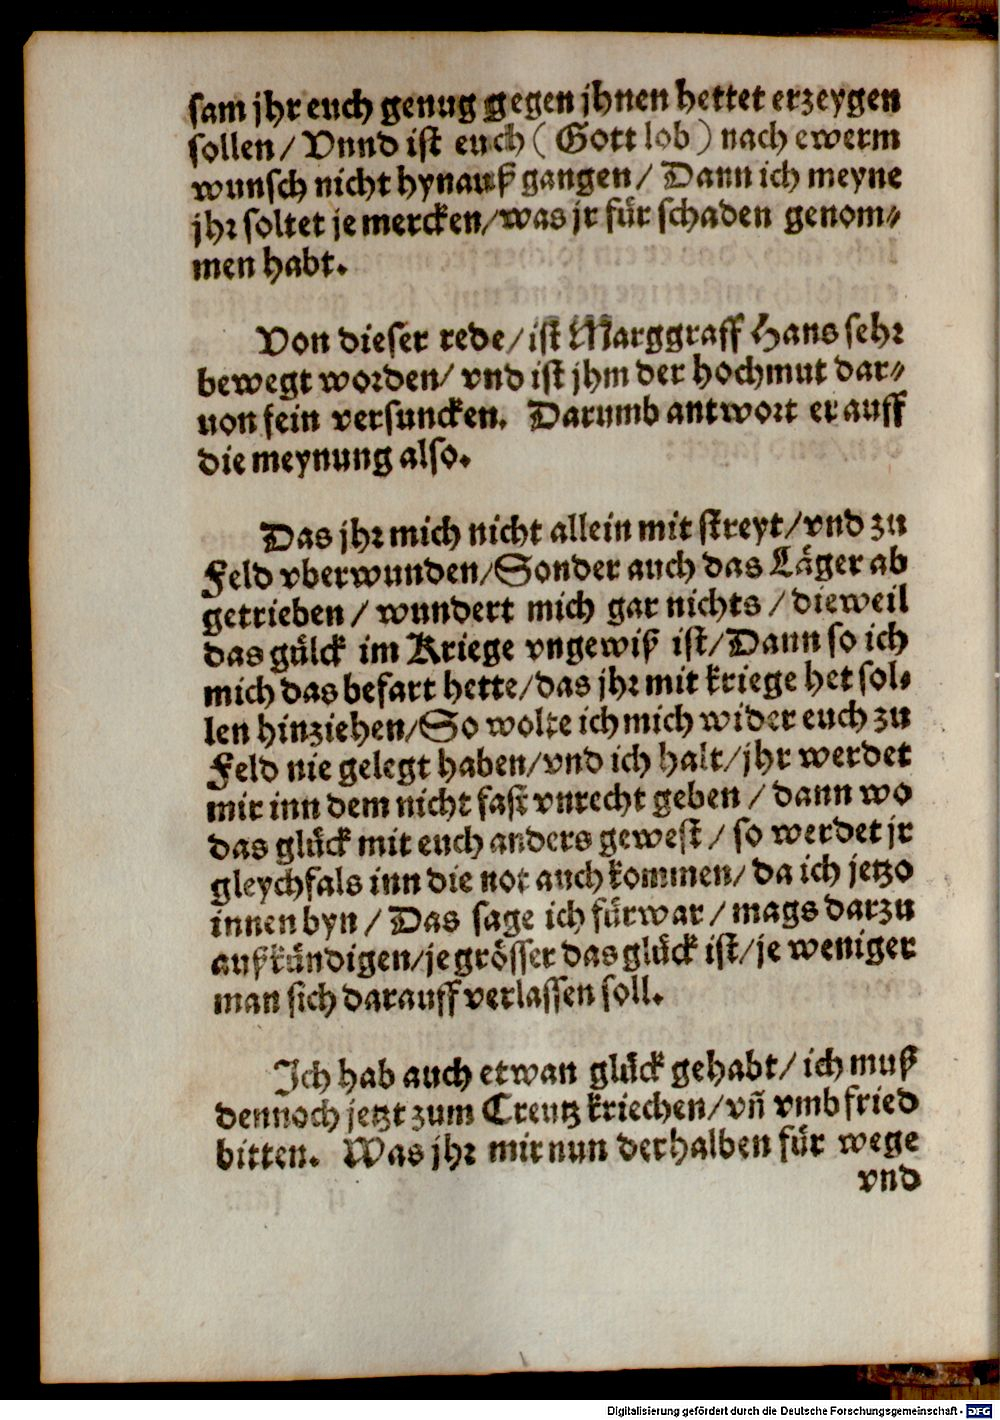 sam jhr euch genug gegen jhnen hettet erzeygen
sollen/ Vnnd ist euch ( Gott lob ) nach ewerm
wunsch nicht hynauß gangen/ Dann ich meyne
jhr soltet je mercken/was jr für schaden genom-
men habt.
Von dieser rede/ist Marggraff Hans sehr
bewegt worden/ vnd ist jhm der hochmut dar-
uon fein versuncken. Darumb antwort er auff
die meynung also.
Das jhr mich nicht allein mit streyt/vnd zu
Feld vberwunden/Sonder auch das Läger ab
getrieben / wundert mich gar nichts / dieweil
das gülck im Kriege vngewiß ist/Dann so ich
mich das befart hette/das jhr mit kriege het sol-
len hinziehen/So wolte ich mich wider euch zu
Feld nie gelegt haben/vnd ich halt/jhr werdet
mir inn dem nicht fast vnrecht geben / dann wo
das glück mit euch anders gewest / so werdet jr
gleychfals inn die not auch kommen/ da ich jetzo
innen byn / Das sage ich fürwar / mags darzu
außkündigen/je grösser das glück ist/je weniger
man sich darauff verlassen soll.
Ich hab auch etwan glück gehabt/ ich muß
dennoch jetzt zum Creutz kriechen/vñ vmb fried
bitten. Was jhr mir nun derhalben für wege
vnd
Digitalisierung gefördert durch die Deutsche Forschungsgemeinschaft - DFG